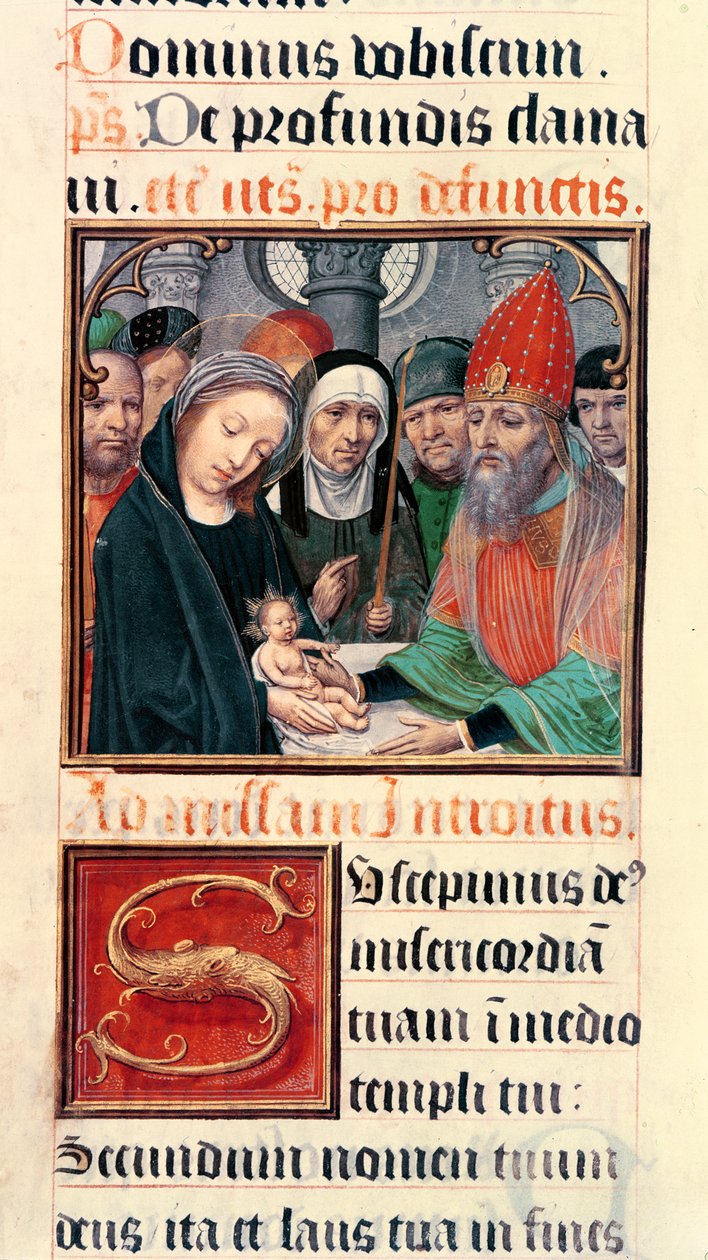 Dominus vobiscum.
ps. De profundis clama
vi. etc̄ uts̄. pro defunctis.
Ad missam Introitus.
SUscepimus deꝰ
misericordiā
tuam ī medio
templi tui:
Secundum nomen tuum
deus ita et laus tua in fines